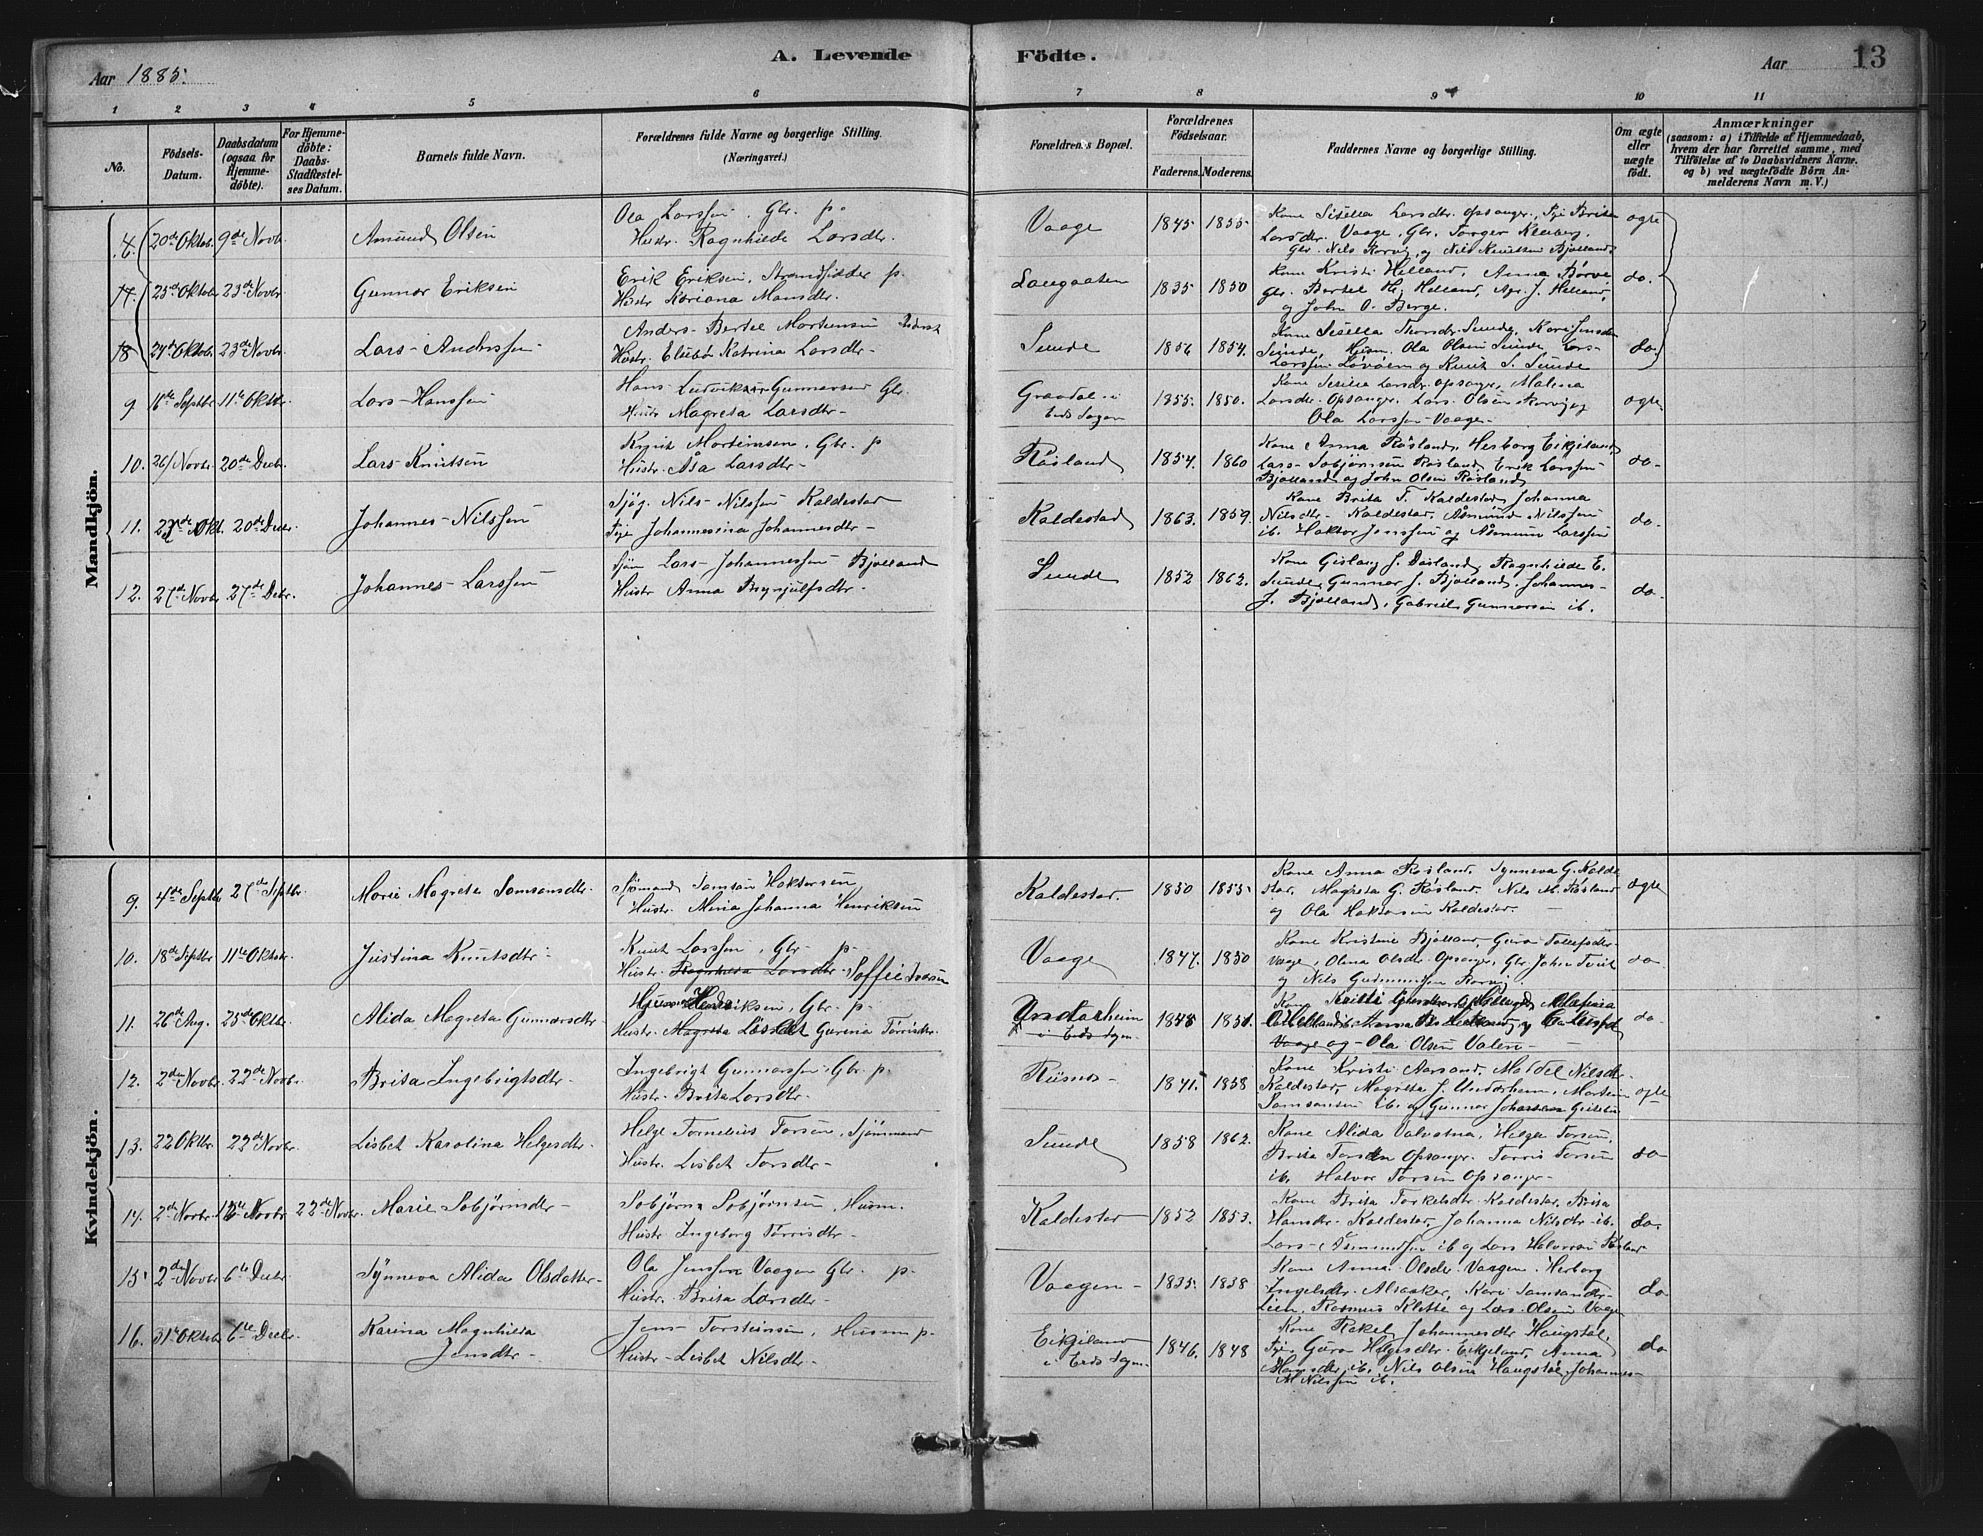 A. Levende Födte.
13
Aar 1885.
Aar
1 2 3 4 5 6 7 8 9 10 11
No.
Födsels-Datum.
Daabsdatum (ogsaa for Hjemme-döbte).
For Hjemme-döbte: Daabs-Stadfæstel-ses Datum.
Barnets fulde Navn.
Forældrenes fulde Navne og borgerlige Stilling. (Næringsvei.)
Forældrenes Bopæl.
Forældrenes Födselsaar.
Faderens. Moderens.
Faddernes Navne og borgerlige Stilling.
Om ægte eller uægte födt.
Anmærkninger
(saasom: a) i Tilfælde af Hjemmedaab, hvem der har forrettet samme, med Tilföielse af to Daabsvidners Navne. og b) ved uægtefödte Börn An-melderens Navn m. V.)
Mandkjön.
20de Oktob. 9de Novb. Amund Olsen
Ola Larssen, Gbr. p.
Hustr. Ragnhilde Larsdtr.
Vaage 1845 1855 ægte
Kone Sisella Larsdtr. Opsanger, Pige Brita
Larsdtr. Vaage, Gbr. Torger
Gbr. Nils Korvig, og Nils Knutsen Bjolland
25de Oktob 23de Novbr. Gunnar Eriksen
Erik Eriksen, Strandsidder p.
Hustr. Mansdtr.
1835 1850 do.
Kone Kristi Helland, Anna Börve
Gbr. Bartel Helland, J. Helland,
og John O. Berge.
8 Oktob 23de Novbr. Lars Anderssen
Anders Bertel Mortensen
Hustr. Katrina Larsdtr.
Sunde 1856 1854. do.
Kone Sisella Sunde, Kari Jensdtr
Sunde, Husm. Ola Olsen Sunde Lars
Larssen og Knut S. Sunde
9 16de Septbr 11te Oktbr. Lars Hanssen
Hans Ludviksen Gunnarsen Gbr.
Hustr. Magreta Larsdtr.
Graadal i Eids Sogn 1855. 1850. ægte
Kone Larsdtr. Opsanger, Malena
Larsdtr. Opsanger, Lars Olsen Korvig og
Ola Larssen Vaage
10. 26/ Novbr. 20de Decbr. Lars Knutsen
Knut Morteinsen, Gbr. p
Hustr. Åsa Larsdtr.
Røsland 1854. 1860 do.
Kone Anna Røsland, Herborg Eikjeland,
Lars Sobjørnsen Røsland, Erik Larssen
Bjolland og John Olsen Røsland
11. Okt. 20de Decbr. Johannes Nilssen
Sjøg. Nils Nilssen Kaldestad
Pige Johannesina Johannesdtr.
Kaldestad 1863. 1859. do.
Kone Brita T. Kaldestad, Johanna
Nilsdtr. Kaldestad, Åsmund Nilssen
ib. Haktor Jenssen og Åsmund Larssen
12. 27de Novbr 27de Debr. Johannes Larssen
Sjøm Lars Johannessen Bjolland
Hustr. Anna Brynjulfsdtr.
Sunde 1852 1862. do.
Kone Gislaug J. Røsland, Ragnhilde E.
Sunde, Gunnar J. Bjolland, Johannes
J. Bjolland, Gabriel Gunnarsen ib.
Kvindekjön.
9. 4de Septbr 27de Septbr. Marie Magreta Samsonsdtr.
Sjømand Samson Haktorsen
Hustr. Maria Johanna Henriksen
Kaldestad. 1850 1855 ægte
Kone Anna Røsland, Synneva G. Kalde
stad, Magreta G. Røsland, Nils M. Røsland
og Ola Haktorsen Kaldestad.
10. 18de Septbr 11te Oktobr. Justina Knutsdtr.
Knut Larssen, Gbr. p.
Hustr. Ragnhilda Larsdtr. Soffie
Vaage 1847. 1850 do
Kone Kristine Bjolland, Guro Tollefsdtr
Vaage, Olina Olsdtr. Opsanger, Gbr. John Tveit
og Nils Gudmundsen Korvig.
11. 26de Aug. 25de Oktbr. Alida Magreta Gunnarsdtr.
Henriksen, Gbr. p.
Hustr. Magreta Larsdtr Gurina Torrisdtr.
i Eids Sogn 1848 do.
Vaage og Ola Olsen Valen
12. 2den Novbr. 22de Novbr. Brita Ingebrigtsdtr.
Ingebrigt Gunnarssen Gbr. p.
Hustr. Brita Larsdtr.
Riisnes 1841. 1858 ægte
Kone Kristi Aarsand, Nilsdtr.
Kaldestad, Magreta J. Undarheim, Mortein
Samsonsen ib. og Gunnar
13. 22 Oktbr. 22de Novbr. Lisbet Karolina Helgesdtr.
Helge Tornelius Torsen, Sjømand
Hustr. Lisbet Torsdtr.
Sunde 1858 1862. do
Kone Alida Valvatna, Helga Torsen,
Brita Torsen Opsanger, Torris Torsen
ib. Halvor Torsen Opsanger.
14. 2de Novbr. Novbr 22de Novbr. Marie Sobjörnsdtr.
Sobjörn Sobjörnsen, Husm.
Hustr. Ingeborg Torrisdtr.
Kaldestad 1852 1853. do.
Kone Brita Torkelsdtr. Kaldestad, Brita
Hansdtr. Kaldestad, Johanna Nilsdtr ib.
Lars Åsmundsen ib og Lars Halvorsen Røsland
15. 2de Novbr 6te Decbr. Synneva Alida Olsdatter
Ola Jenssen Vaagen Gbr. p.
Hustr. Brita Larsdtr.
Vaagen 1835. 1838 do
Kone Anna Olsdtr. Vaagen, Herborg
Ingelsdtr. Alsaaker, Kari Samsondtr.
Lien, Rasmus Klette og Lars Olsen Vaage
16. 31te Oktobr 6te Decbr. Karina Magnhilda Jensdtr.
Jens Torsteinsen, Husm p.
Hustr. Lisbet Nilsdtr.
Eikjeland i Eids Sogn 1846. 1848 do
Kone Rakel Johannesdtr Haugstøl,
Pige Guro Helgesdtr. Eikjeland, Anna
Hansdtr. ib. Nils Olsen Haugstøl, Johannes
M Nilssen ib.